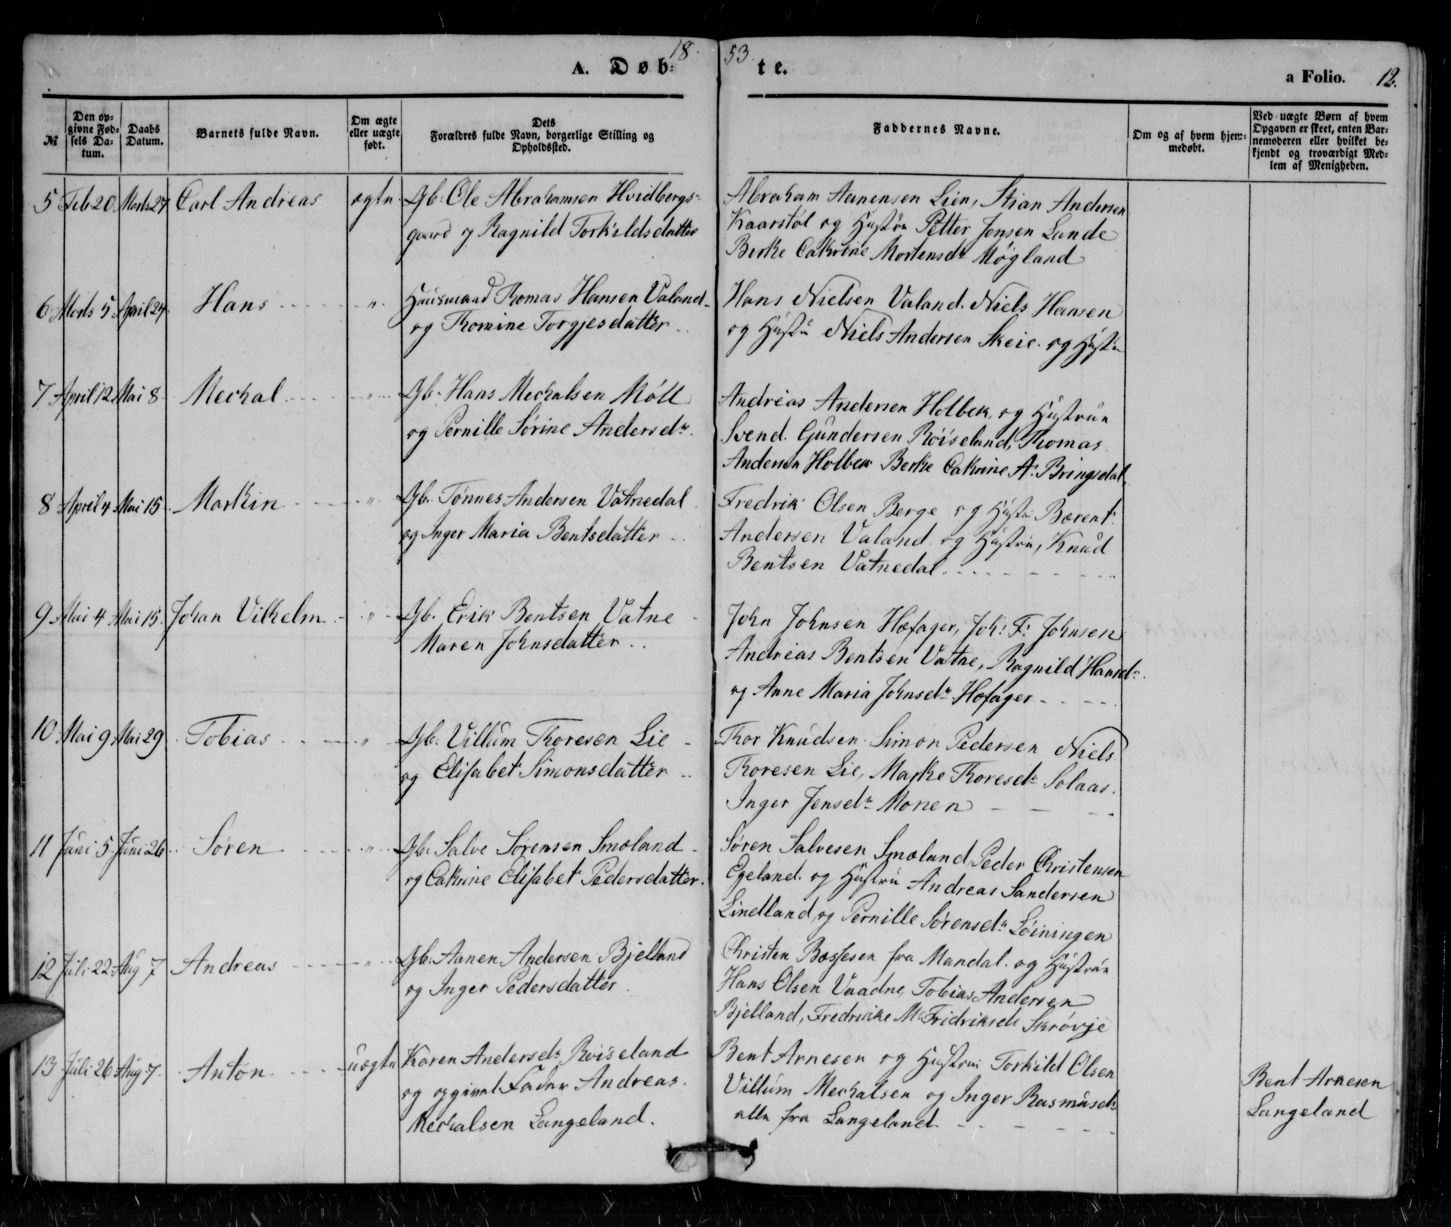 18 53
A. Døb: te.
a Folio. 12.
№ Den opgivne Fødsels Datum. Daabs Datum. Barnets fulde Navn. Om ægte eller uægte født. Dets Forældres fulde Navn, borgerlige Stilling og Opholdssted. Faddernes Navne. Om og af hvem hjemmedøbt. Ved uægte Børn af hvem Opgaven er skeet, enten Barnemoderen eller hvilket bekjendt og troværdigt Medlem af Menigheden.
5 Feb 20. Marts 27 Carl Andreas ægte Gb. Ole Abrahamsen Hvidbergs-
gaard og Ragnild Torkildsdatter
Abraham Aanensen Lien, Stian Andersen
Kaarstøl og Hustru Petter Jensen Lande
Berthe Cathrine Mortensdr Møgland
6 Marts 5 April 24 Hans " Huusmand Thomas Hansen Valand
og Thomine Torgjesdatter
Hans Nielsen Valand. Niels Hansen
og Hustru Niels Andersen Skeie. og Hustru
7 April 12 Mai 8 Mechal " Gb. Hans Mechalsen Møll
og Pernille Sørine Andersdr.
Andreas Andersen Holbek, og Hustrun
Svend. Gundersen Røiseland, Thomas
Andersen Holbek Berthe Cathrine A. Bringsdal
8 April 4 Mai 15 Marthin " Gb. Tønnes Andersen Vatnedal
og Inger Maria Bentsdatter
Fredrik Olsen Berge og Hustru Bærent
Andersen Valand og Hustru, Knud
Bentsen Vatnedal
9 Mai 4 Mai 15. Johan Vilhelm " Gb. Erik Bentsen Vatne
Maren Johnsdatter
John Johnsen Hæfager, Joh: F: Johnsen
Andreas Bentsen Vatne, Ragnild Hansdr
og Anne Maria Johnsdr Hæfager
10 Mai 9 Mai 29 Tobias " Gb. Villum Thoresen Lie
og Elisabet Simonsdatter
Thor Knudsen Simon Pedersen Niels
Thoresen Lie, Maske Thoresdr Solaas.
Inger Jensdr Monen
11 Juni 5 Juni 26 Søren " Gb. Salve Sørensen Smæland
og Cathrine Elisabet Pedersdatter.
Søren Salvesen Smæland Peder Christensen
Egeland og Hustru Andreas Sandersen
Lindland og Pernille Sørensdr Løiningen
12 Juli 22 Aug 7 Andreas " Gb. Aanen Andersen Bjelland
og Inger Pedersdatter
Christen Bæssesen fra Mandal. og Hustrun
Hans Olsen Vaadne, Tobias Andersen
Bjelland, Fredrikke M. Fridriksdr Skrøvje
13 Juli 26 Aug 7. Anton uægte Karen Andersdr Røiseland
og opgivet Fader Andreas
Mechalsen Langeland.
Bent Arnesen og Hustru Torkild Olsen
Villum Mechalsen og Inger Rasmusdr
alle fra Langeland
Bent Arnesen
Langeland